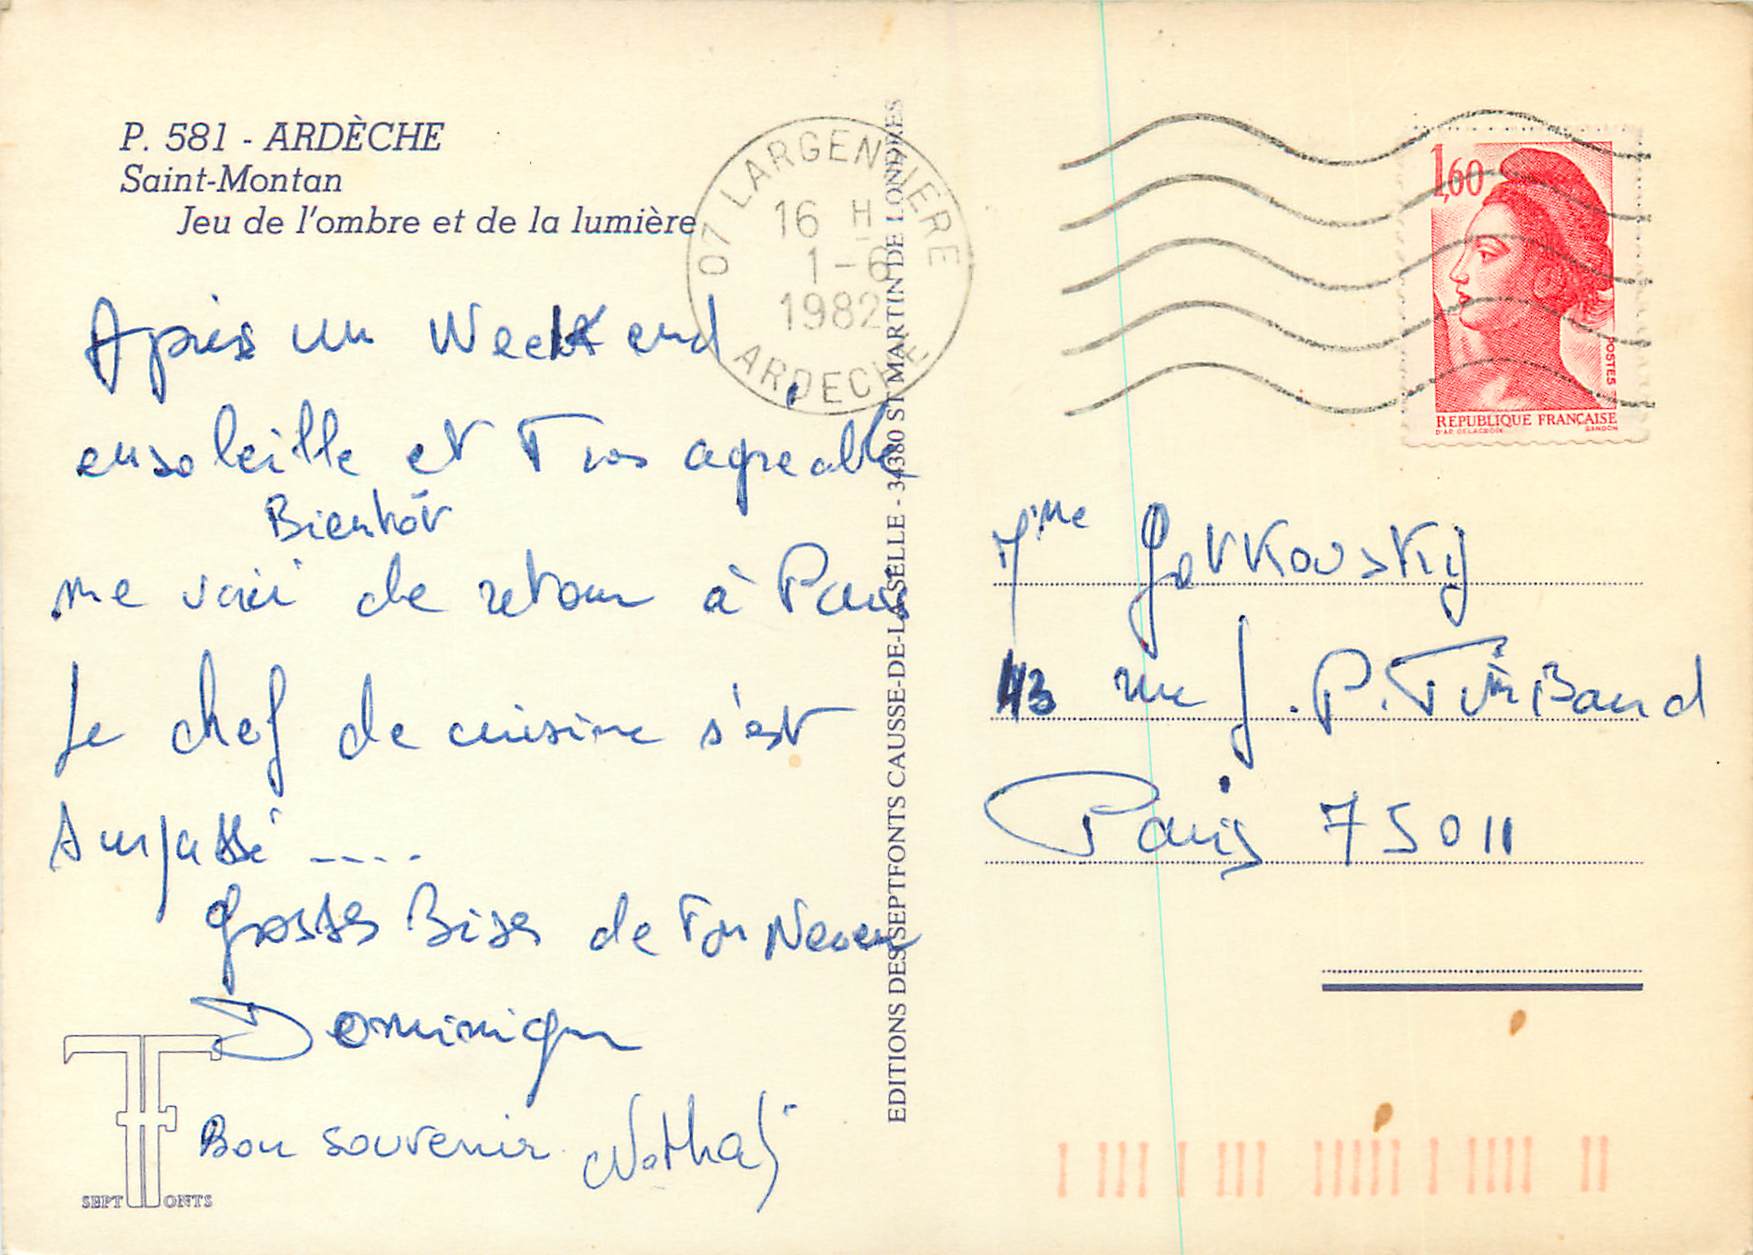 P. 581 - ARDÈCHE
Saint-Montan
Jeu de l'ombre et de la lumière
Après un Week end
ensoleillé et Très agréable,
Bientôt
me voici de retour à Paris
Le chef de cuisine s'est
surpassé ----
Grosses Bises de Ton Neveu
Dominique
Bon souvenir
SEPT FONTS
EDITIONS DES SEPTFONTS CAUSSE-DE-LA-SELLE - 34380 ST MARTIN DE LONDRES
07 LARGENTIERE
16 H
1-6
1982
ARDECHE
1,60
POSTES
REPUBLIQUE FRANÇAISE
D'AP. DELACROIX GANDON
Mme
43 rue J.P. Timbaud
Paris 75011